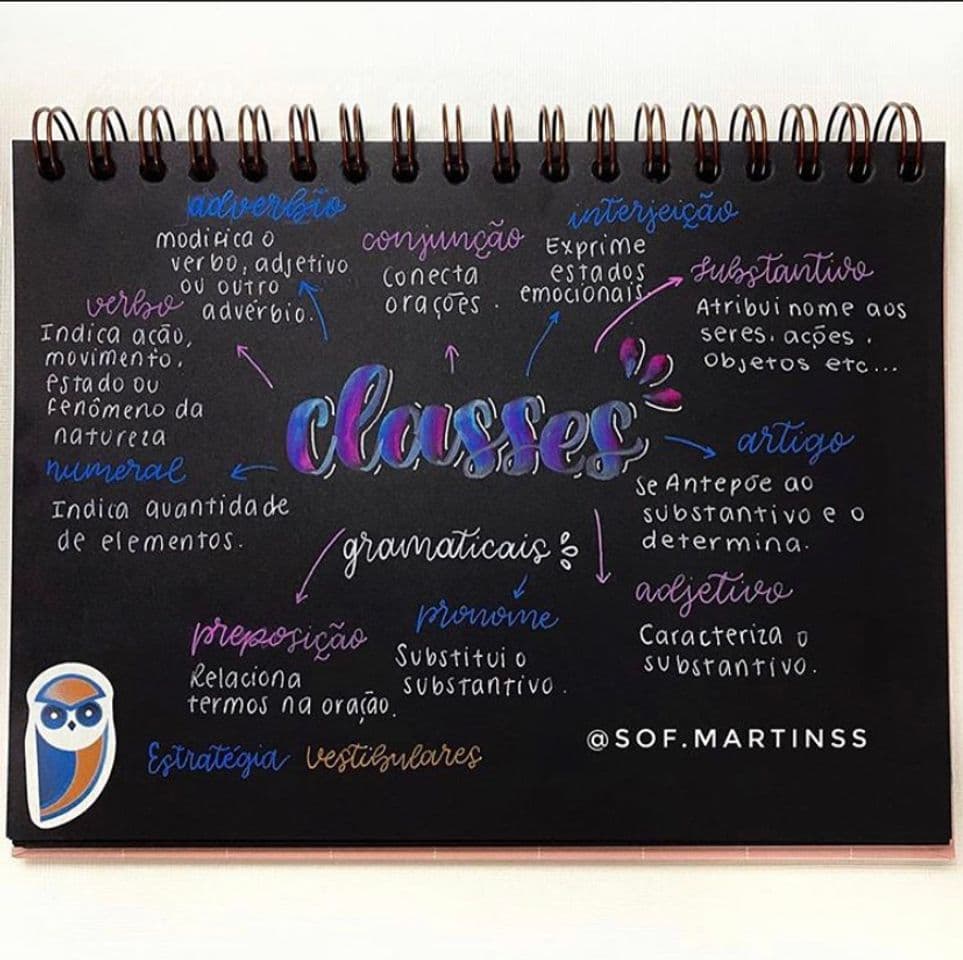 advérbio
modifica o
verbo, adjetivo
ou outro
advérbio.
conjunção
Conecta
orações.
interjeição
Exprime
estados
emocionais
substantivo
Atribui nome aos
seres, ações,
objetos etc...
verbo
Indica ação,
movimento,
estado ou
fenômeno da
natureza
classes
gramaticais
artigo
se Antepõe ao
substantivo e o
determina.
numeral
Indica quantidade
de elementos.
adjetivo
Caracteriza o
substantivo.
pronome
Substitui o
substantivo.
preposição
Relaciona
termos na oração.
@SOF.MARTINSS
Estratégia Vestibulares